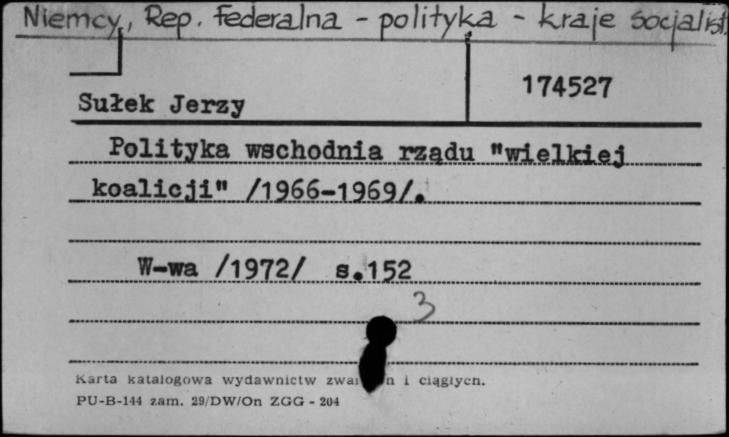 Niemcy, Rep. Federalna - polityka - kraje socjalist.
174527
Sułek Jerzy
Polityka wschodnia rządu "wielkiej
koalicji" /1966-1969/.
W-wa /1972/ s.152
3
Karta katalogowa wydawnictw i ciągłych.
PU-B-144 zam. 29/DW/On ZGG - 204